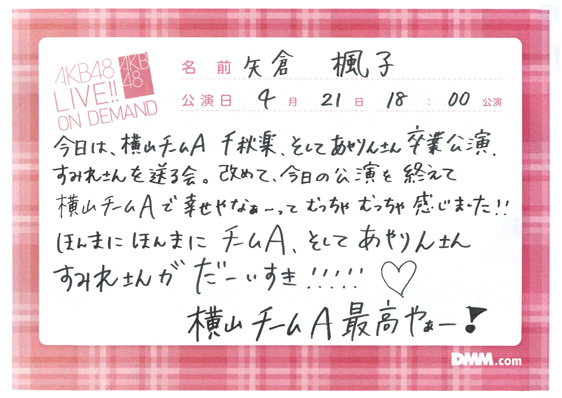 AKB48
LIVE!!
ON DEMAND
AKB
48
名前 矢倉 楓子
公演日 4月 21日 18:00 公演
今日は、横山チームA 千秋楽、そしてあやりんさん卒業公演、
すみれさんを送る会。改めて、今日の公演を終えて
横山チームAで幸せやなぁ〜ってむっちゃむっちゃ感じました!!
ほんまにほんまに チームA、そしてあやりんさん
すみれさんが だーいすき!!!!! ♡
横山チームA最高やぁー!
DMM.com